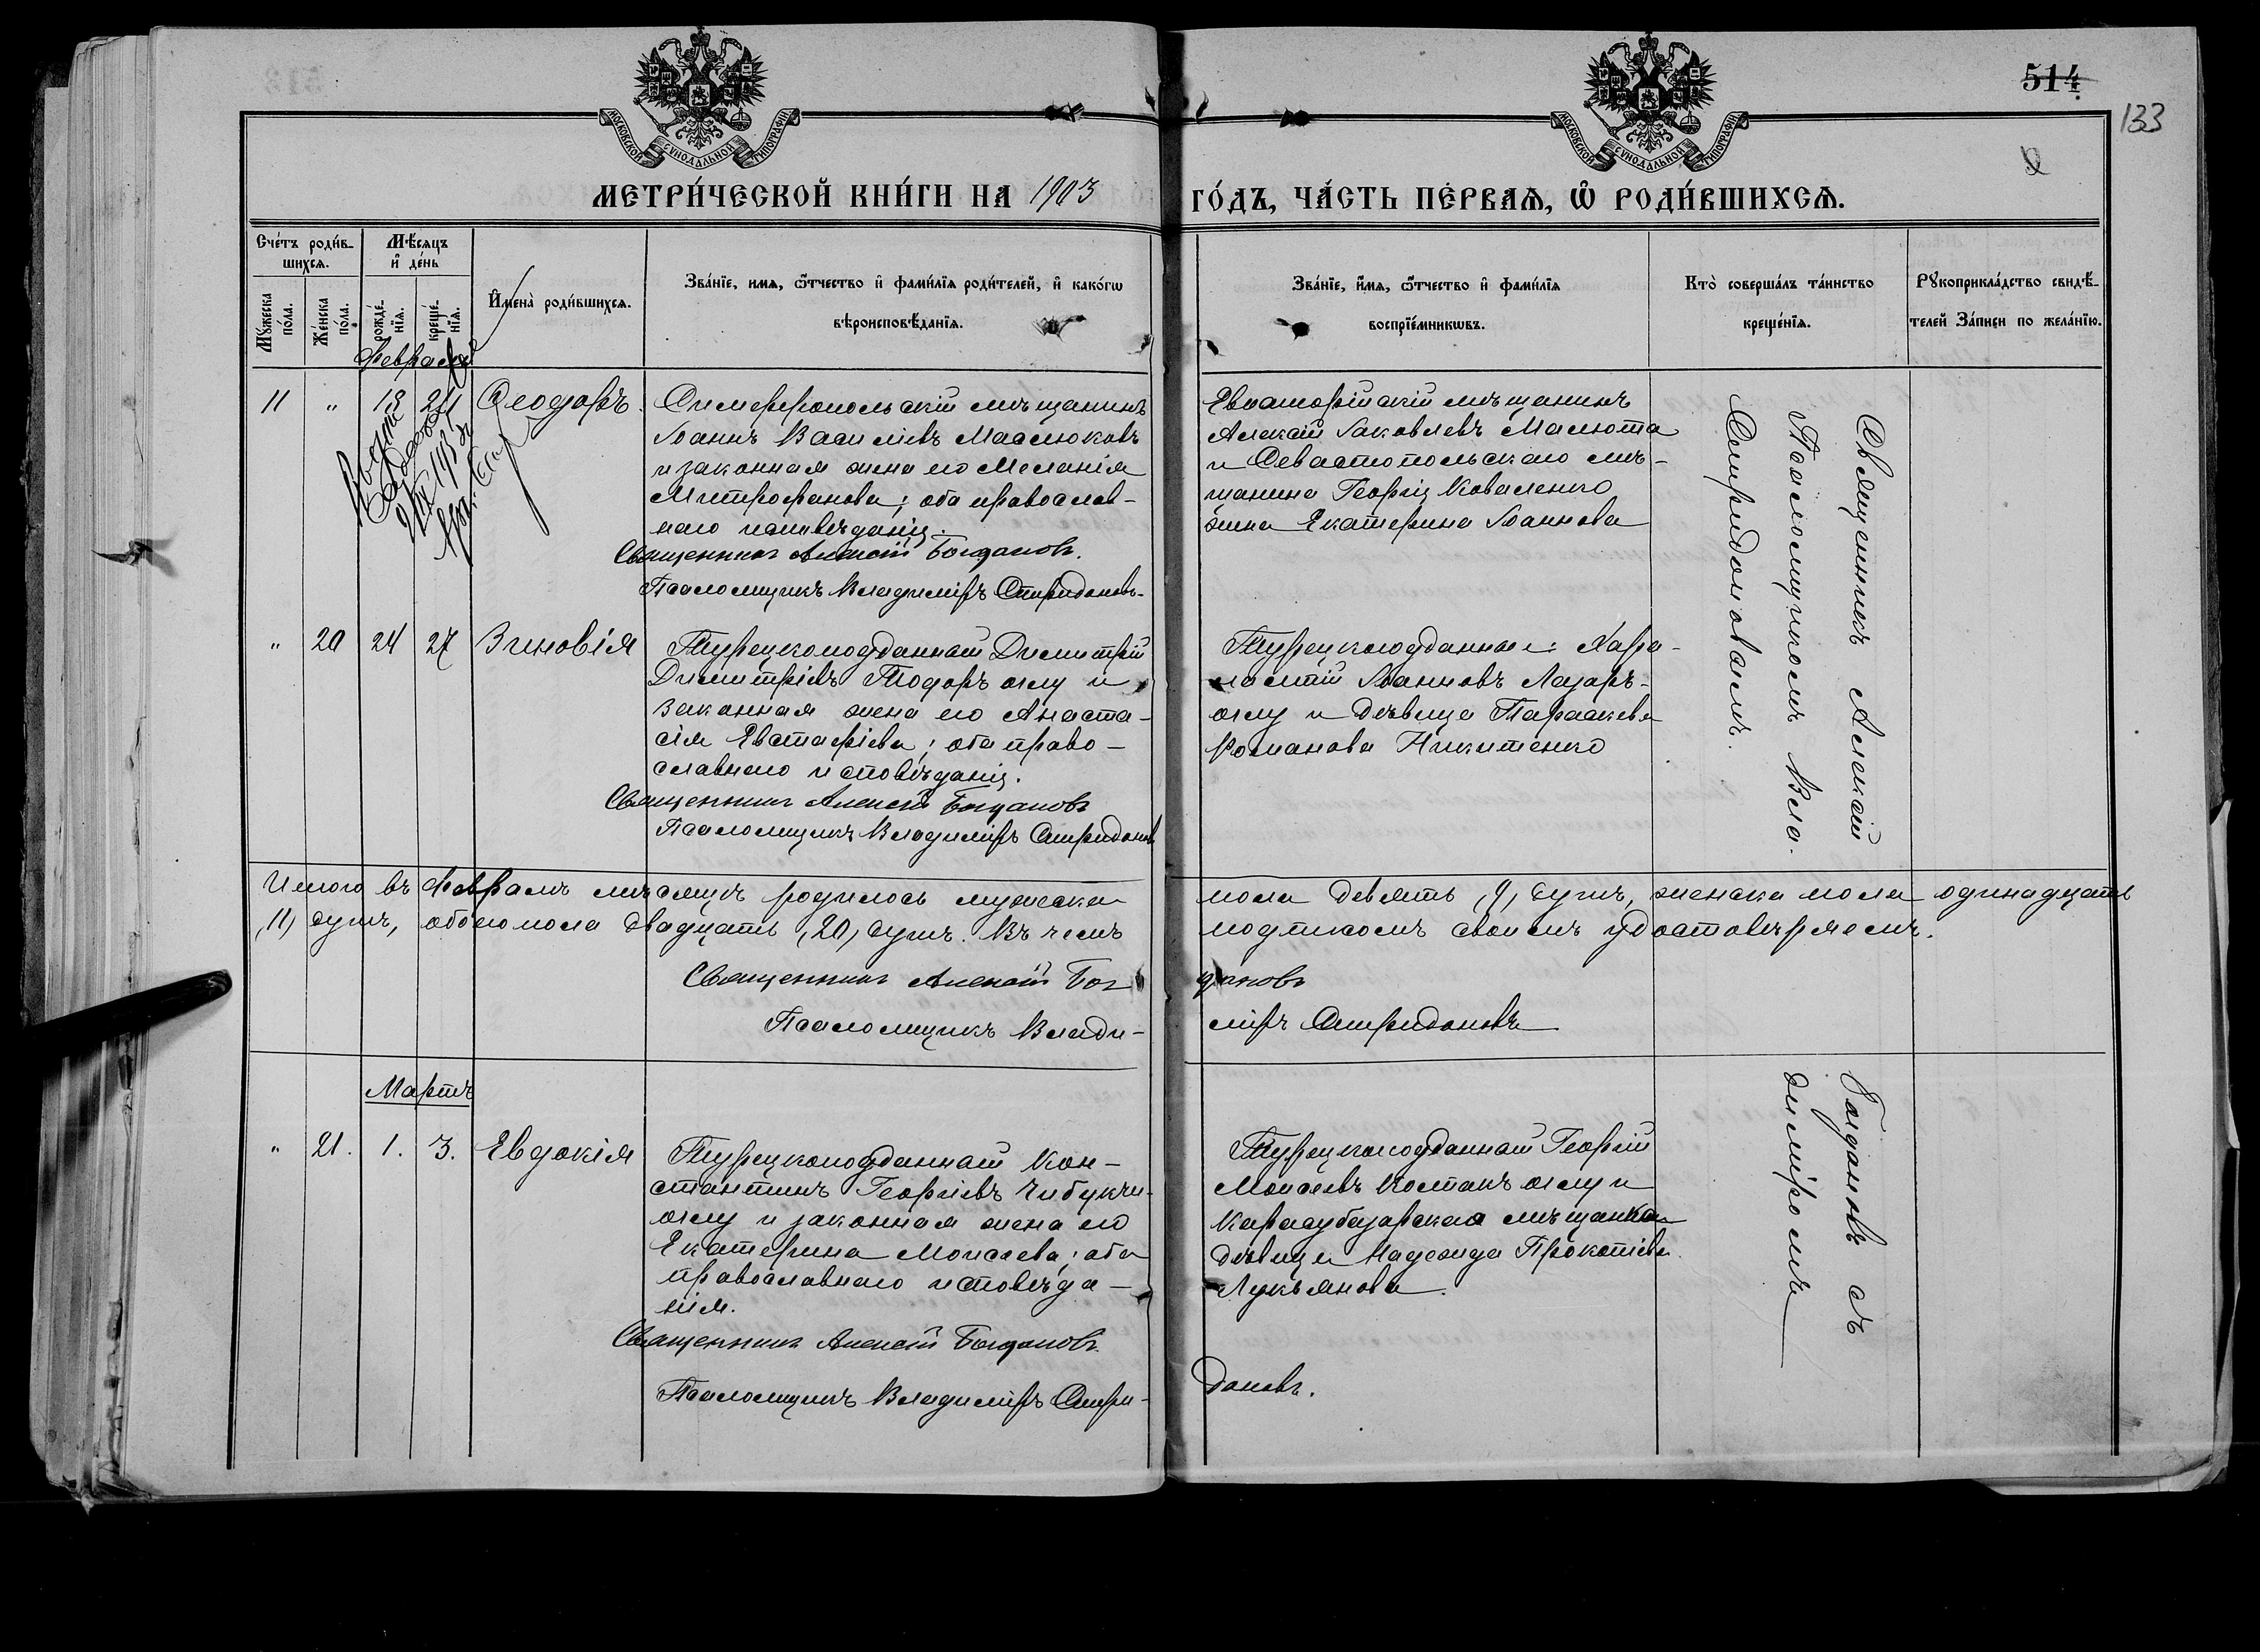 514
133
МОСКОВСКОЙ СѴНОДАЛЬНОЙ ТИПОГРАФІИ
МОСКОВСКОЙ СѴНОДАЛЬНОЙ ТИПОГРАФІИ
МЕТРИ́ЧЕСКОЙ КНИ́ГИ НА 1903 ГО́ДЪ, ЧА́СТЬ ПЕ́РВАѦ, Ѽ РОДИ́ВШИХСѦ.
Сче́тъ роди́в-
шихсѧ.
Мѣ́сѧцъ
и҆ де́нь
Мꙋ́жеска
по́ла.
Же́нска
по́ла.
рожде́-
нїѧ.
креще́-
нїѧ.
И҆мена̀ роди́вшихсѧ.
Зва́нїе, имѧ, ѻ҆́тчество и҆ фами́лїѧ роди́телей, и҆ како́гѡ
вѣроисповѣ́данїѧ.
Зва́нїе, и҆́мѧ, ѻ҆́тчество и҆ фами́лїѧ
воспрїе́мникѡвъ.
Кто̀ соверша́лъ та́инство
креще́нїѧ.
Рꙋкоприкла́дство свидѣ́-
телей За́писи по жела́нїю.
Февраль
11 " 18 Ѳеодоръ.
Симферопольскій мѣщанинъ
Іоаннъ Василіевъ Маслюковъ
и законная жена его Меланія
Митрофанова; оба православ-
наго исповѣданія.
Священникъ Алексій Богдановъ.
Псаломщикъ Владиміръ Спиридоновъ.
Евпаторійскій мѣщанинъ
Алексій Іаковлевъ Малюта
и Севастопольскаго мѣ-
щанина Георгія Коваленко
жена Екатерина Іоаннова
Священникъ Алексій
Псаломщикомъ Вла-
Спиридоновымъ.
" 20 24 27 Зиновія
Турецкоподданный Димитрій
Димитріевъ Тодоръ оглу и
законная жена его Анаста-
сія Евстафіева; оба право-
славнаго исповѣданія.
Священникъ Алексій Богдановъ
Псаломщикъ Владиміръ Спиридоновъ
Турецкоподданные: Хара-
лампій Іоанновъ Лазаръ-
оглу и дѣвица Параскева
Романова Никитенко
Итого въ Февралѣ мѣсяцѣ родилось мужеска пола девять, 9, душъ, женска пола одинадцать
,11, душъ, обоего пола двадцать ,20, душъ. Въ чемъ подписомъ своимъ удостовѣряемъ.
Священникъ Алексій Богдановъ
Псаломщикъ Владиміръ Спиридоновъ
Мартъ
" 21. 1. 3. Евдокія
Турецкоподданный Кон-
стантинъ Георгіевъ Чибукчи-
оглу и законная жена его
Екатерина Моисеева; оба
православнаго исповѣда-
нія.
Священникъ Алексій Богдановъ.
Псаломщикъ Владиміръ Спиридоновъ.
Турецкоподданный Георгій
Моисеевъ Костанъ оглу и
Карасубазарская мѣщанка
дѣвица Надежда Прокопіева
Лукьянова.
Богдановъ съ
диміромъ